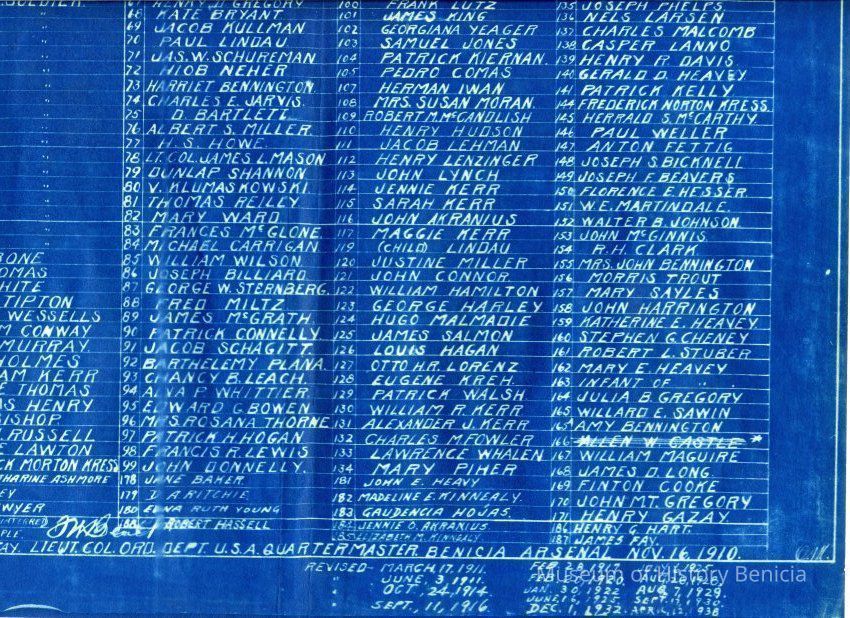 SOLDIER.
RONE
OMAS
HITE
TIPTON
WESSELLS
M CONWAY
MURRAY
HOLMES
AM KERR
THOMAS
AS HENRY
BISHOP
RUSSELL
E LAWTON
CK MORTON KRESS
THARINE ASHMORE
EY
WYER
INTERRED
PLE.
67 HENRY D GREGORY
68 KATE BRYANT
69 JACOB KULLMAN
70 PAUL LINDAU
71 JAS. W. SCHUREMAN
72 HIOB NEHER
73 HARRIET BENNINGTON
74 CHARLES E. JARVIS.
75 D. BARTLETT
76 ALBERT S. MILLER.
77 H. S. HOWE
78 LT. COL. JAMES L. MASON
79 DUNLAP SHANNON
80 V. KLUMASKOWSKI
81 THOMAS REILLY
82 MARY WARD
83 FRANCES McGLONE
84 MICHAEL CARRIGAN.
85 WILLIAM WILSON.
86 JOSEPH BILLIARD
87 GEORGE W. STERNBERG.
88 FRED MILTZ
89 JAMES McGRATH
90 PATRICK CONNELLY
91 JACOB SCHAGITT
92 BARTHELEMY PLANA
93 CHANCY B. LEACH.
94 ALVA P WHITTIER
95 EDWARD G. BOWEN
96 MRS. ROSANA THORNE
97 PATRICK H. HOGAN
98 FRANCIS R. LEWIS
99 JOHN DONNELLY.
178 JANE BAKER
179 D A RITCHIE
180 EDNA RUTH YOUNG
188 ROBERT HASSELL
100 FRANK LUTZ
101 JAMES KING
102 GEORGIANA YEAGER
103 SAMUEL JONES
104 PATRICK KIERNAN.
105 PEDRO COMAS
107 HERMAN IWAN
108 MRS. SUSAN MORAN.
109 ROBERT M. McCANDLISH
110 HENRY HUDSON
111 JACOB LEHMAN
112 HENRY LENZINGER
113 JOHN LYNCH
114 JENNIE KERR
115 SARAH KERR
116 JOHN AKRANIUS
117 MAGGIE KERR
119 (CHILD) LINDAU
120 JUSTINE MILLER
121 JOHN CONNOR
122 WILLIAM HAMILTON
123 GEORGE HARLEY
124 HUGO MALMADIE
125 JAMES SALMON
126 LOUIS HAGAN
127 OTTO H.R. LORENZ
128 EUGENE KREH.
129 PATRICK WALSH
130 WILLIAM R. KERR
131 ALEXANDER J. KERR
132 CHARLES M. FOWLER
133 LAWRENCE WHALEN
134 MARY PIHER
181 JOHN E. HEAVY
182 MADELINE E. KINNEALY.
183 GAUDENCIA HOJAS.
184 JENNIE O. AKRANIUS
185 ELIZABETH M. KINNEALY
135 JOSEPH PHELPS
136 NELS LARSEN
137 CHARLES MALCOMB
138 CASPER LANNO
139 HENRY R DAVIS
140 GERALD D. HEAVEY
141 PATRICK KELLY
144 FREDERICK NORTON KRESS.
145 HERRALD S. McCARTHY.
146 PAUL WELLER
147 ANTON FETTIG
148 JOSEPH S. BICKNELL
149 JOSEPH F. BEAVERS
150 FLORENCE E. HESSER.
151 W. E. MARTINDALE.
152 WALTER B. JOHNSON.
153 JOHN McGINNIS.
154 R. H. CLARK.
155 MRS. JOHN BENNINGTON
156 MORRIS TROUT
157 MARY SAYLES
158 JOHN HARRINGTON
159 KATHERINE E. HEAVEY
160 STEPHEN G. CHENEY
161 ROBERT L. STUBER
162 MARY E. HEAVEY
163 INFANT OF " "
164 JULIA B. GREGORY
165 WILLARD E. SAWIN
165A AMY BENNINGTON
166 *ALLEN W. CASTLE*
167 WILLIAM MAGUIRE
168 JAMES D. LONG.
169 FINTON COOKE
170 JOHN M.T. GREGORY
171 HENRY GAZAY.
186 HENRY G. HART.
187 JAMES FAY.
LIEUT. COL. ORD. DEPT. U.S.A. QUARTERMASTER BENICIA ARSENAL NOV. 16, 1910.
REVISED- MARCH. 17, 1911.
JUNE. 3, 1911.
OCT. 24, 1914
SEPT. 11, 1916
JAN. 30, 1922 AUG. 7, 1929.
DEC. 1, 1932. APR. 12, 1938
Museum of History Benicia